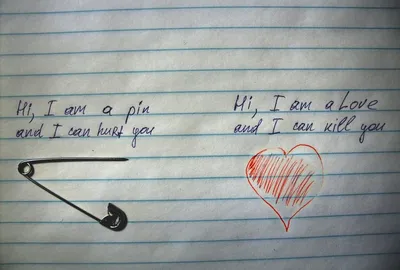 Hi, I am a pin
and I can hurt you
Hi, I am a Love
and I can kill you